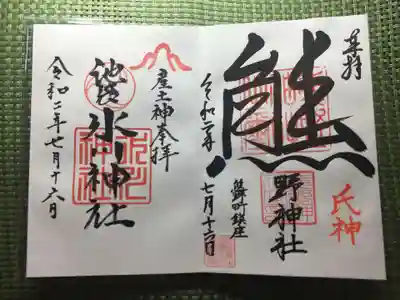 奉拝
熊野神社
氏神
鎮座
令和二年
七月十六日
産土神奉拝
氷川神社
氷川神社
令和二年七月十六日